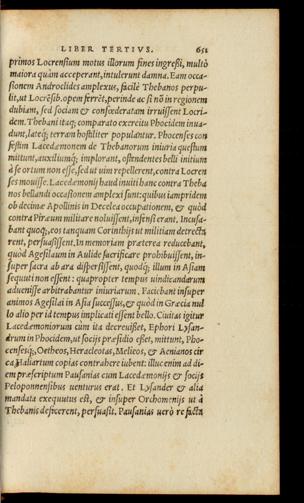 LIBER TERTIVS. 651
primos Locrensium motus illorum fines ingreßi, multò
maiora quàm acceperant, intulerunt damna. Eam occa-
sionem Androclides amplexus, facilè Thebanos perpu-
lit, ut Locrēsib. opem ferrēt, perinde ac si nō in regionem
dubiam, sed sociam & confœderatam irruissent Locri-
dem. Thebani itaq; comparato exercitu Phocidem inua-
dunt, lateq́; terram hostiliter populantur. Phocenses con
festim Lacedæmonem de Thebanorum iniuria questum
mittunt, auxiliumq́; implorant, ostendentes belli initium
à se ortum non esse, sed ut uim repellerent, contra Locren
ses mouisse. Lacedæmonij haud inuiti hanc contra Theba
nos bellandi occasionem amplexi sunt: quibus iampridem
ob decimæ Apollinis in Decelea occupationem, & quòd
contra Piræum militare noluissent, infensi erant. Incusa-
bant quoq;, eos tanquam Corinthijs ut militiam detrecta
rent, persuasissent. In memoriam præterea reducebant,
quòd Agesilaum in Aulide sacrificare prohibuissent, in-
super sacra ab ara dispersissent, quodq́; illum in Asiam
sequuti non essent: quapropter tempus uindicandarum
aduenisse arbitrabantur iniuriarum. Faciebant insuper
animos Agesilai in Asia successus, & quòd in Græcia nul
lo alio per id tempus implicati essent bello. Ciuitas igitur
Lacedæmoniorum cùm ita decreuißet, Ephori Lysan-
drum in Phocidem, ut socijs præsidio eßet, mittunt, Pho-
censesq́;, Oetheos, Heracleotas, Melieos, & Aenianos cir
ca Haliartum copias contrahere iubent: illuc enim ad di-
em præscriptum Pausanias cum Lacedæmonijs & socijs
Peloponnensibus uenturus erat. Et Lysander & alia
mandata exequutus est, & insuper Orchomenijs ut à
Thebanis deficerent, persuasit. Pausanias uerò re facta